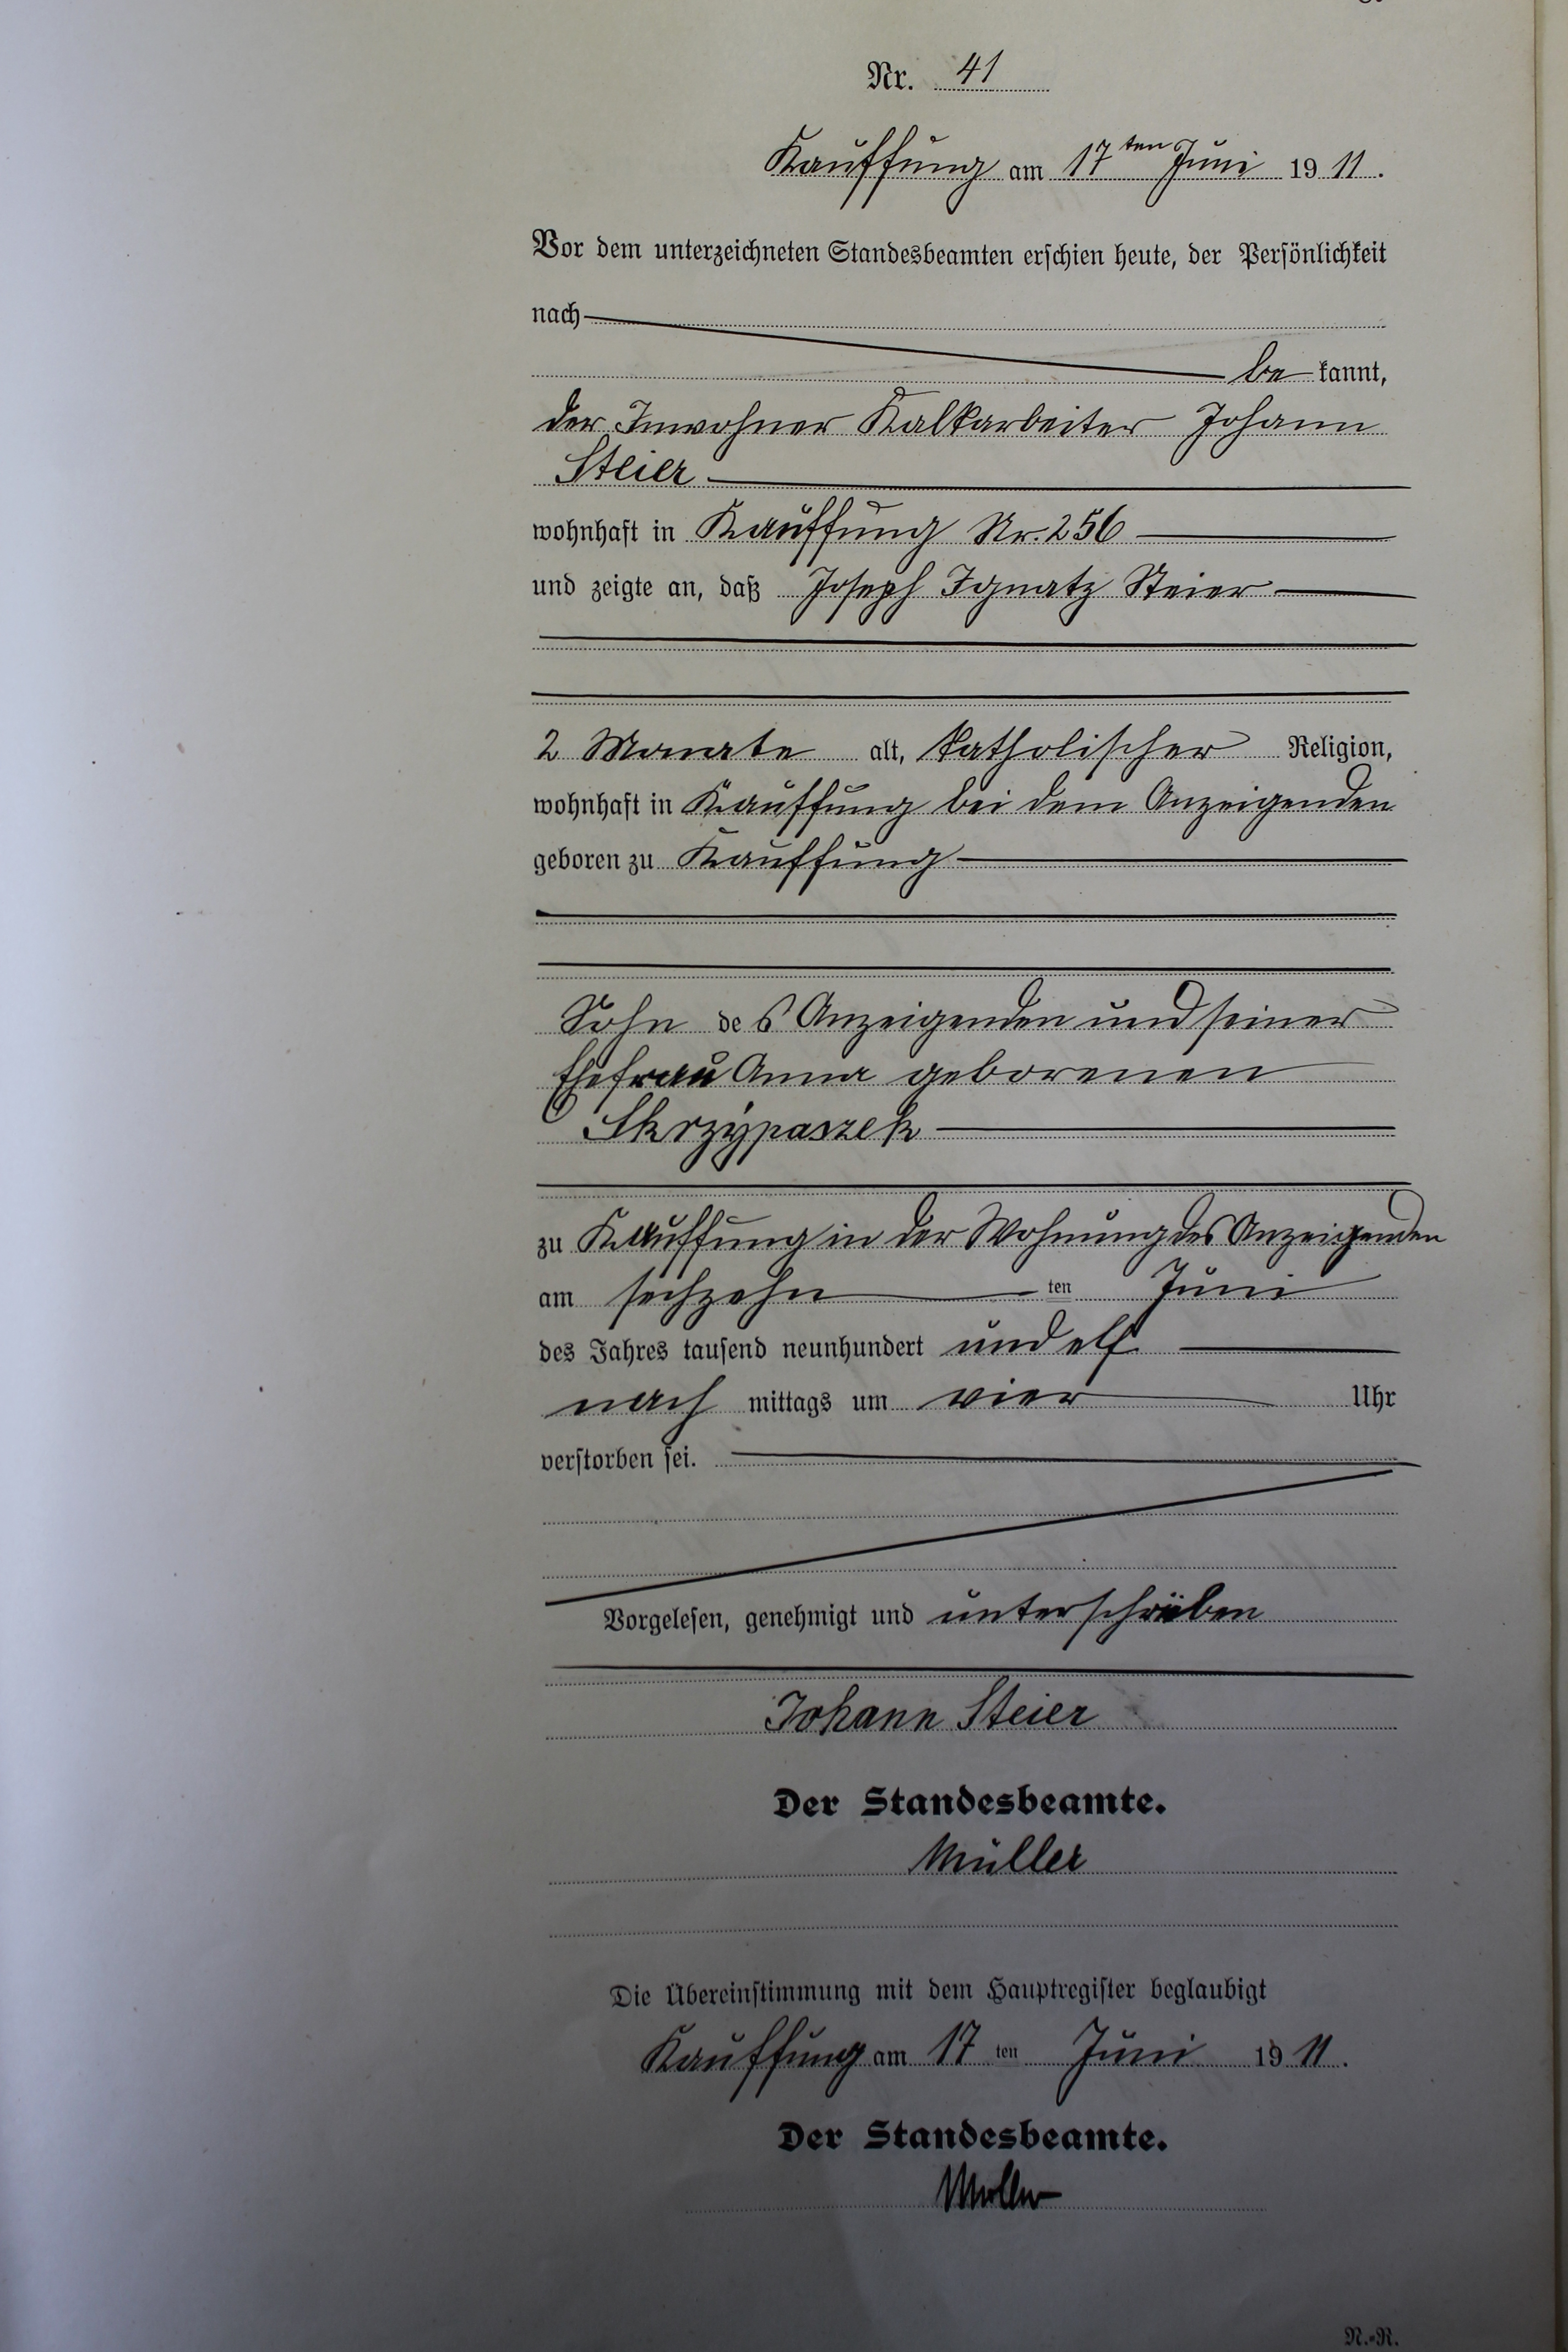 Nr. 41
Kauffung am 17ten Juni 1911.
Vor dem unterzeichneten Standesbeamten erschien heute, der Persönlichkeit
nach
be kannt,
der Inwohner Kalkarbeiter Johann
Steier
wohnhaft in Kauffung Nr. 256
und zeigte an, daß Joseph Ignatz Steier
2 Monate alt, katholischer Religion,
wohnhaft in Kauffung bei dem Anzeigenden
geboren zu Kauffung
Sohn des Anzeigenden und seiner
Ehefrau Anna geborenen
Skrzypaszek
zu Kauffung in der Wohnung des Anzeigenden
am sechzehn ten Juni
des Jahres tausend neunhundert und elf
nach mittags um vier Uhr
verstorben sei.
Vorgelesen, genehmigt und unterschrieben
Johann Steier
Der Standesbeamte.
Müller
Die Übereinstimmung mit dem Hauptregister beglaubigt
Kauffung am 17 ten Juni 1911.
Der Standesbeamte.
Müller
N.-R.